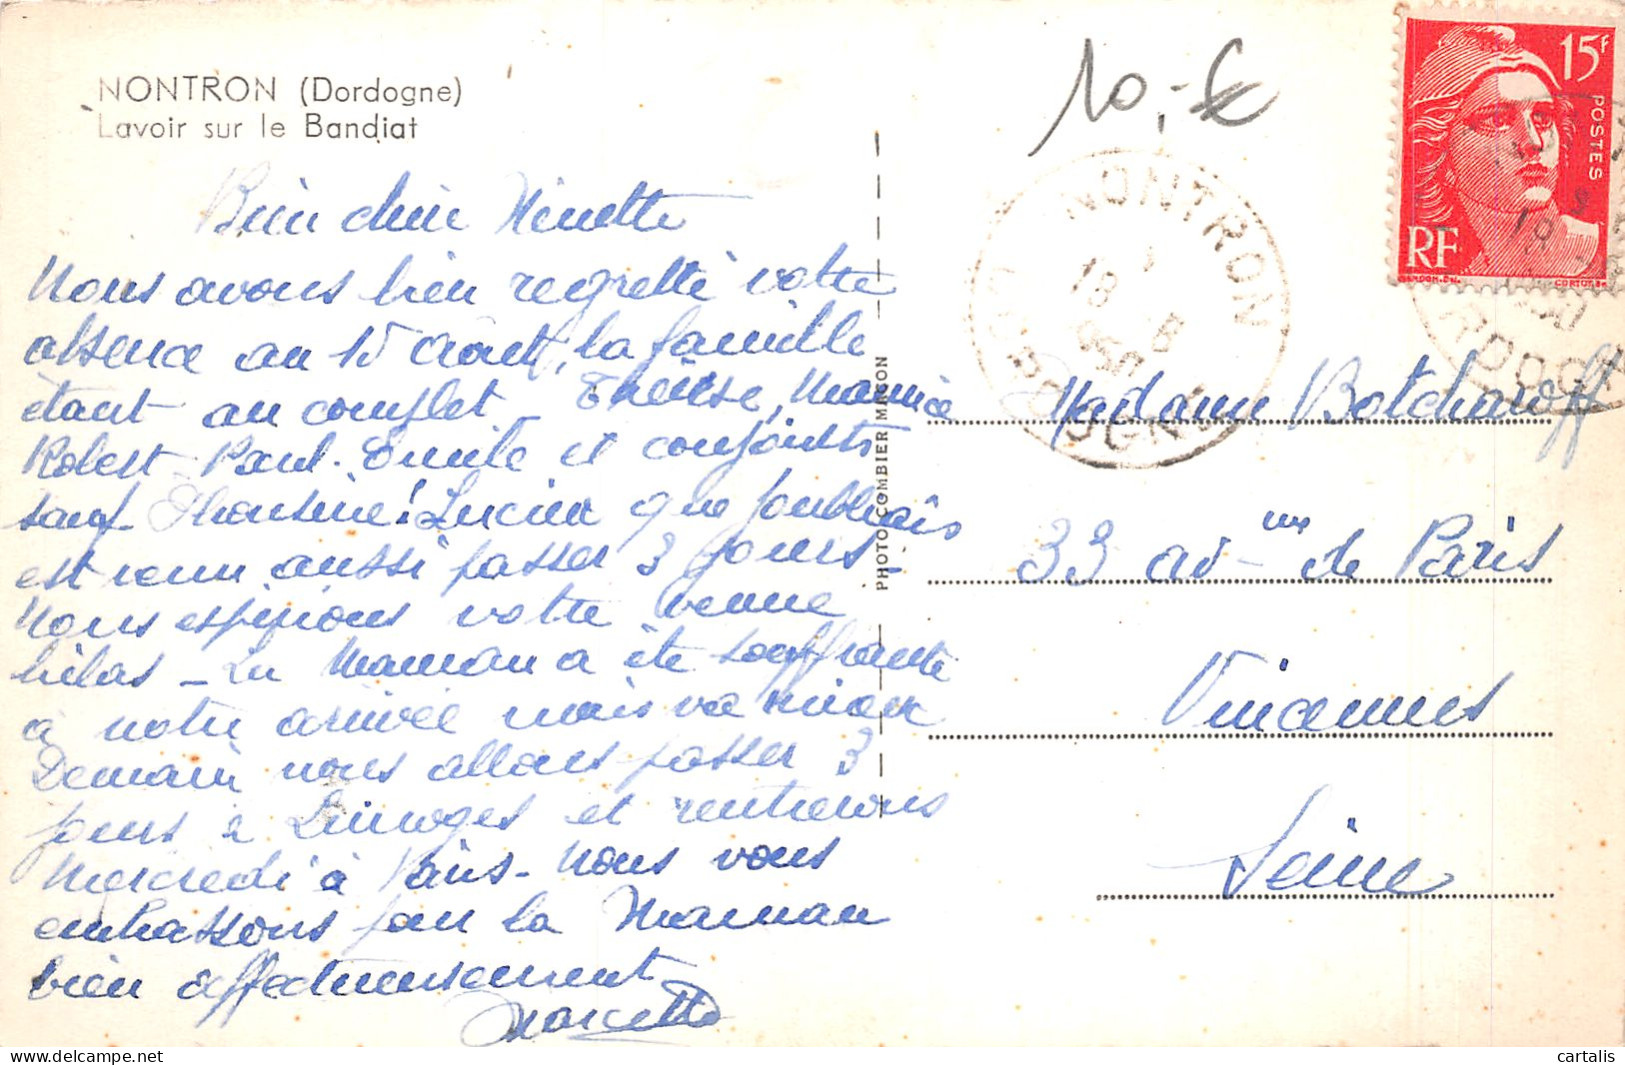 NONTRON (Dordogne)
Lavoir sur le Bandiat
10,-€
15F
POSTES
RF
NONTRON
18
DORDOGNE
PHOTO COMBIER MACON
Bien chère Ninette
Nous avons bien regretté votre
absence au 15 Août, la famille
étant au complet - Thérèse, Maurice
Robert - Paul - Emile et conjoints
sauf Thérésine! Lucien que j'oubliais
est venu aussi passer 3 jours -
Nous espérions votre venue
hélas - La Maman a été souffrante
à notre arrivée mais va mieux
Demain nous allons passer 3
jours à Limoges et rentrerons
Mercredi à Paris - Nous vous
embrassons pour la Maman
bien affectueusement
Marcelle
Madame Botcharoff
33 av-nue de Paris
Vincennes
Seine
cartalis